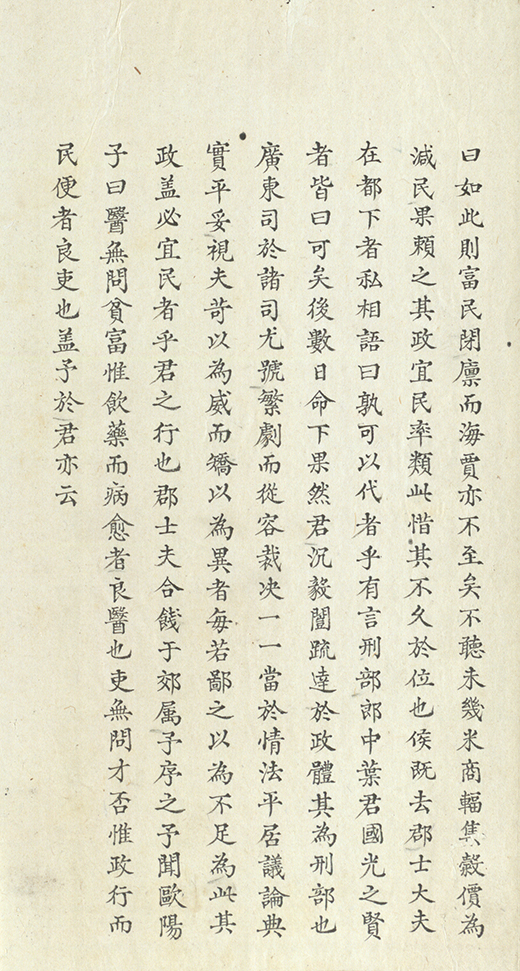 曰如此則富民閉廩而海賈亦不至矣不聽未幾米商輻集穀價為
減民果頼之其政宜民率類此惜其不久於位也侯既去郡士大夫
在都下者私相語曰孰可以代者乎有言刑部郎中葉君國光之賢
者皆曰可矣後數日命下果然君沉毅闓䟽達於政體其為刑部也
廣東司於諸司尤號繁劇而從容裁决一一當於情法平居議論典
實平妥視夫苛以為威而矯以為異者每若鄙之以為不足為此其
政盖必宜民者乎君之行也郡士夫合餞于郊属予序之予聞歐陽
子曰醫無問貧富惟飲藥而病愈者良醫也吏無問才否惟政行而
民便者良吏也盖予於君亦云